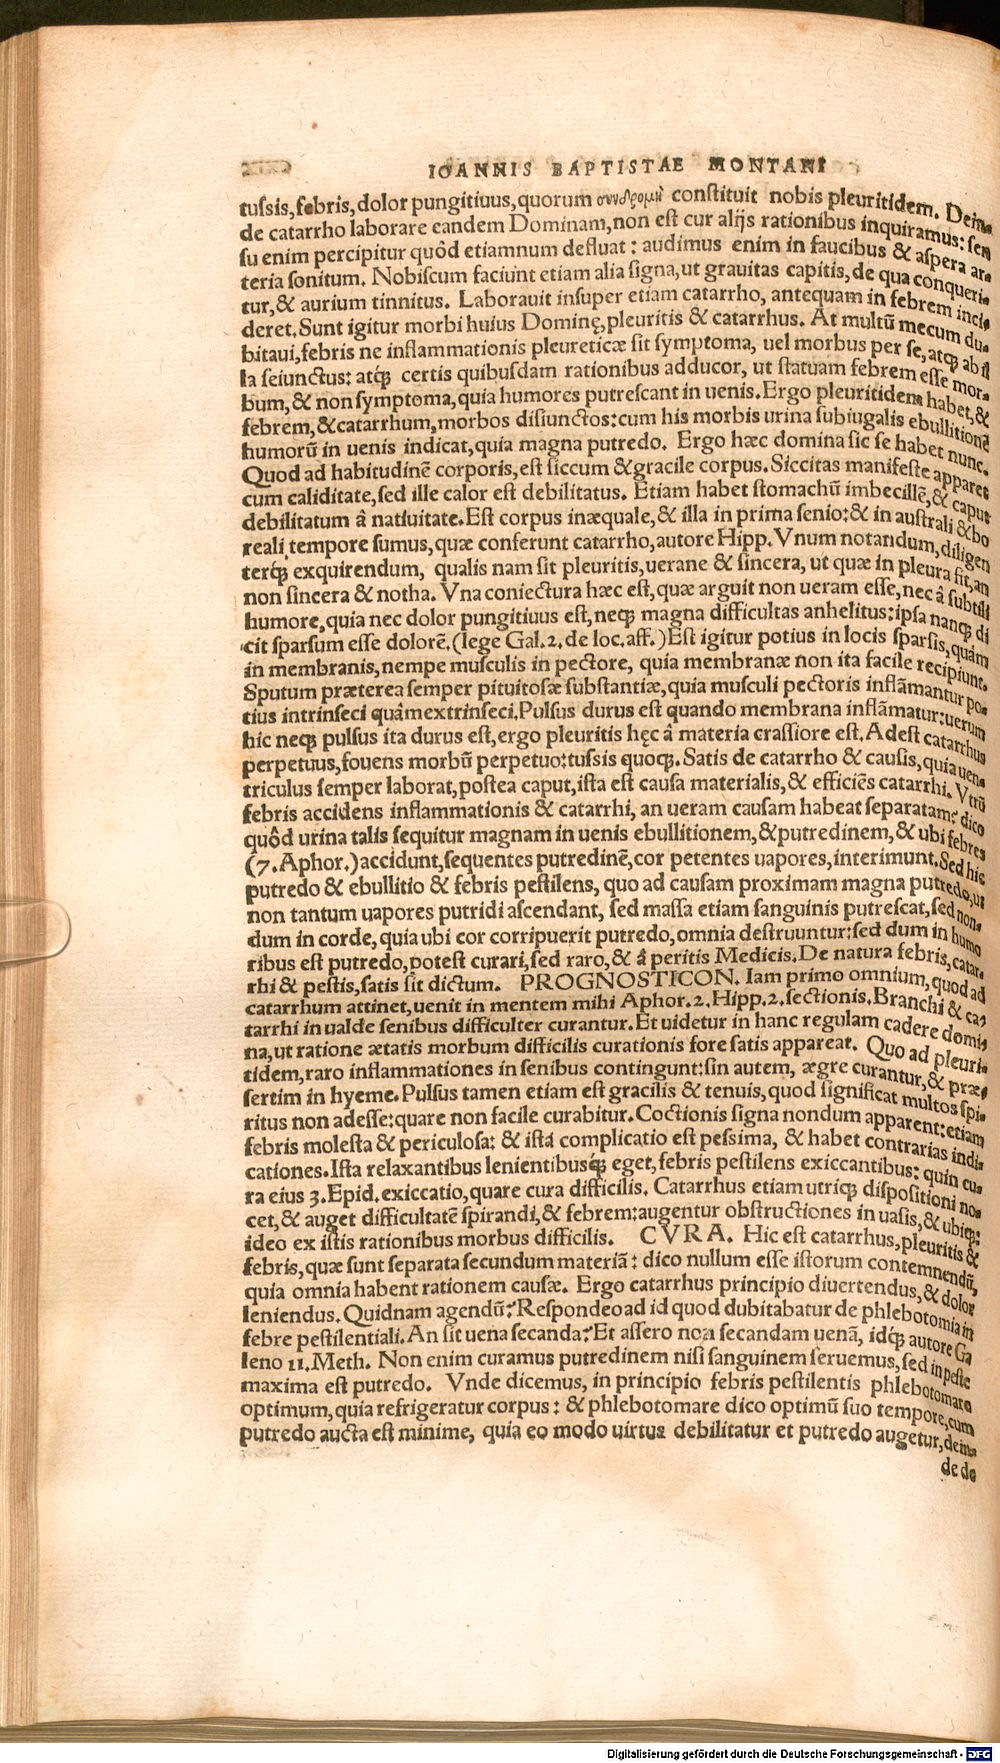 IOANNIS BAPTISTAE MONTANI
tussis, febris, dolor pungitiuus, quorum συνδρομὴ constituit nobis pleuritidem. Dein-
de catarrho laborare eandem Dominam, non est cur alijs rationibus inquiramus: sen
su enim percipitur quôd etiamnum defluat: audimus enim in faucibus & aspera ar-
teria sonitum. Nobiscum faciunt etiam alia signa, ut grauitas capitis, de qua conqueri-
tur, & aurium tinnitus. Laborauit insuper etiam catarrho, antequam in febrem inci-
deret. Sunt igitur morbi huius Dominę, pleuritis & catarrhus. At multũ mecum du-
bitaui, febris ne inflammationis pleureticæ sit symptoma, uel morbus per se, atq; ab il
la seiunctus: atq; certis quibusdam rationibus adducor, ut statuam febrem esse mor-
bum, & non symptoma, quia humores putrescant in uenis. Ergo pleuritidem habet, &
febrem, & catarrhum, morbos disiunctos: cum his morbis urina subiugalis ebullitionẽ
humorũ in uenis indicat, quia magna putredo. Ergo hæc domina sic se habet nunc.
Quod ad habitudinẽ corporis, est siccum & gracile corpus. Siccitas manifeste apparet
cum caliditate, sed ille calor est debilitatus. Etiam habet stomachũ imbecillẽ, & caput
debilitatum â natiuitate. Est corpus inæquale, & illa in prima senio: & in australi & bo
reali tempore sumus, quæ conferunt catarrho, autore Hipp. Vnum notandum, diligen
terq́; exquirendum, qualis nam sit pleuritis, uerane & sincera, ut quæ in pleura sit, an
non sincera & notha. Vna coniectura hæc est, quæ arguit non ueram esse, nec â subtili
humore, quia nec dolor pungitiuus est, neq; magna difficultas anhelitus: ipsa nanq; di
cit sparsum esse dolorẽ. (lege Gal. 2. de loc. aff.) Est igitur potius in locis sparsis, quâm
in membranis, nempe musculis in pectore, quia membranæ non ita facile recipiunt.
Sputum præterea semper pituitosæ substantiæ, quia musculi pectoris inflãmantur po-
tius intrinseci quâm extrinseci. Pulsus durus est quando membrana inflãmatur: uerum
hic neq; pulsus ita durus est, ergo pleuritis hęc â materia crassiore est. Adest catarrhus
perpetuus, fouens morbũ perpetuo: tussis quoq;. Satis de catarrho & causis, quia uen-
triculus semper laborat, postea caput, ista est causa materialis, & efficiẽs catarrhi. Vtrũ
febris accidens inflammationis & catarrhi, an ueram causam habeat separatam? dico
quôd urina talis sequitur magnam in uenis ebullitionem, & putredinem, & ubi febres
(7. Aphor.) accidunt, sequentes putredinẽ, cor petentes uapores, interimunt. Sed hic
putredo & ebullitio & febris pestilens, quo ad causam proximam magna putredo, ut
non tantum uapores putridi ascendant, sed massa etiam sanguinis putrescat, sed non-
dum in corde, quia ubi cor corripuerit putredo, omnia destruuntur: sed dum in humo
ribus est putredo, potest curari, sed raro, & â peritis Medicis. De natura febris, catar-
rhi & pestis, satis sit dictum. PROGNOSTICON. Iam primo omnium, quod ad
catarrhum attinet, uenit in mentem mihi Aphor. 2. Hipp. 2. sectionis. Branchi & ca-
tarrhi in ualde senibus difficulter curantur. Et uidetur in hanc regulam cadere domi-
na, ut ratione ætatis morbum difficilis curationis fore satis appareat. Quo ad pleuri-
tidem, raro inflammationes in senibus contingunt: sin autem, ægre curantur, & præ-
sertim in hyeme. Pulsus tamen etiam est gracilis & tenuis, quod significat multos spi-
ritus non adesse: quare non facile curabitur. Coctionis signa nondum apparent: etiam
febris molesta & periculosa: & ista complicatio est pessima, & habet contrarias indi-
cationes. Ista relaxantibus lenientibusq́; eget, febris pestilens exiccantibus: quin cu-
ra eius 3. Epid. exiccatio, quare cura difficilis. Catarrhus etiam utriq; dispositioni no-
cet, & auget difficultatẽ spirandi, & febrem: augentur obstructiones in uasis, & ubiq;:
ideo ex istis rationibus morbus difficilis. CVRA. Hic est catarrhus, pleuritis &
febris, quæ sunt separata secundum materiã: dico nullum esse istorum contemnendũ,
quia omnia habent rationem causæ. Ergo catarrhus principio diuertendus, & dolor
leniendus. Quidnam agendũ? Respondeo ad id quod dubitabatur de phlebotomia in
febre pestilentiali. An sit uena secanda? Et assero non secandam uenã, idq́; autore Ga
leno 11. Meth. Non enim curamus putredinem nisi sanguinem seruemus, sed in peste
maxima est putredo. Vnde dicemus, in principio febris pestilentis phlebotomare
optimum, quia refrigeratur corpus: & phlebotomare dico optimũ suo tempore, cum
putredo aucta est minime, quia eo modo uirtus debilitatur et putredo augetur, dein-
de de
Digitalisierung gefördert durch die Deutsche Forschungsgemeinschaft - DFG